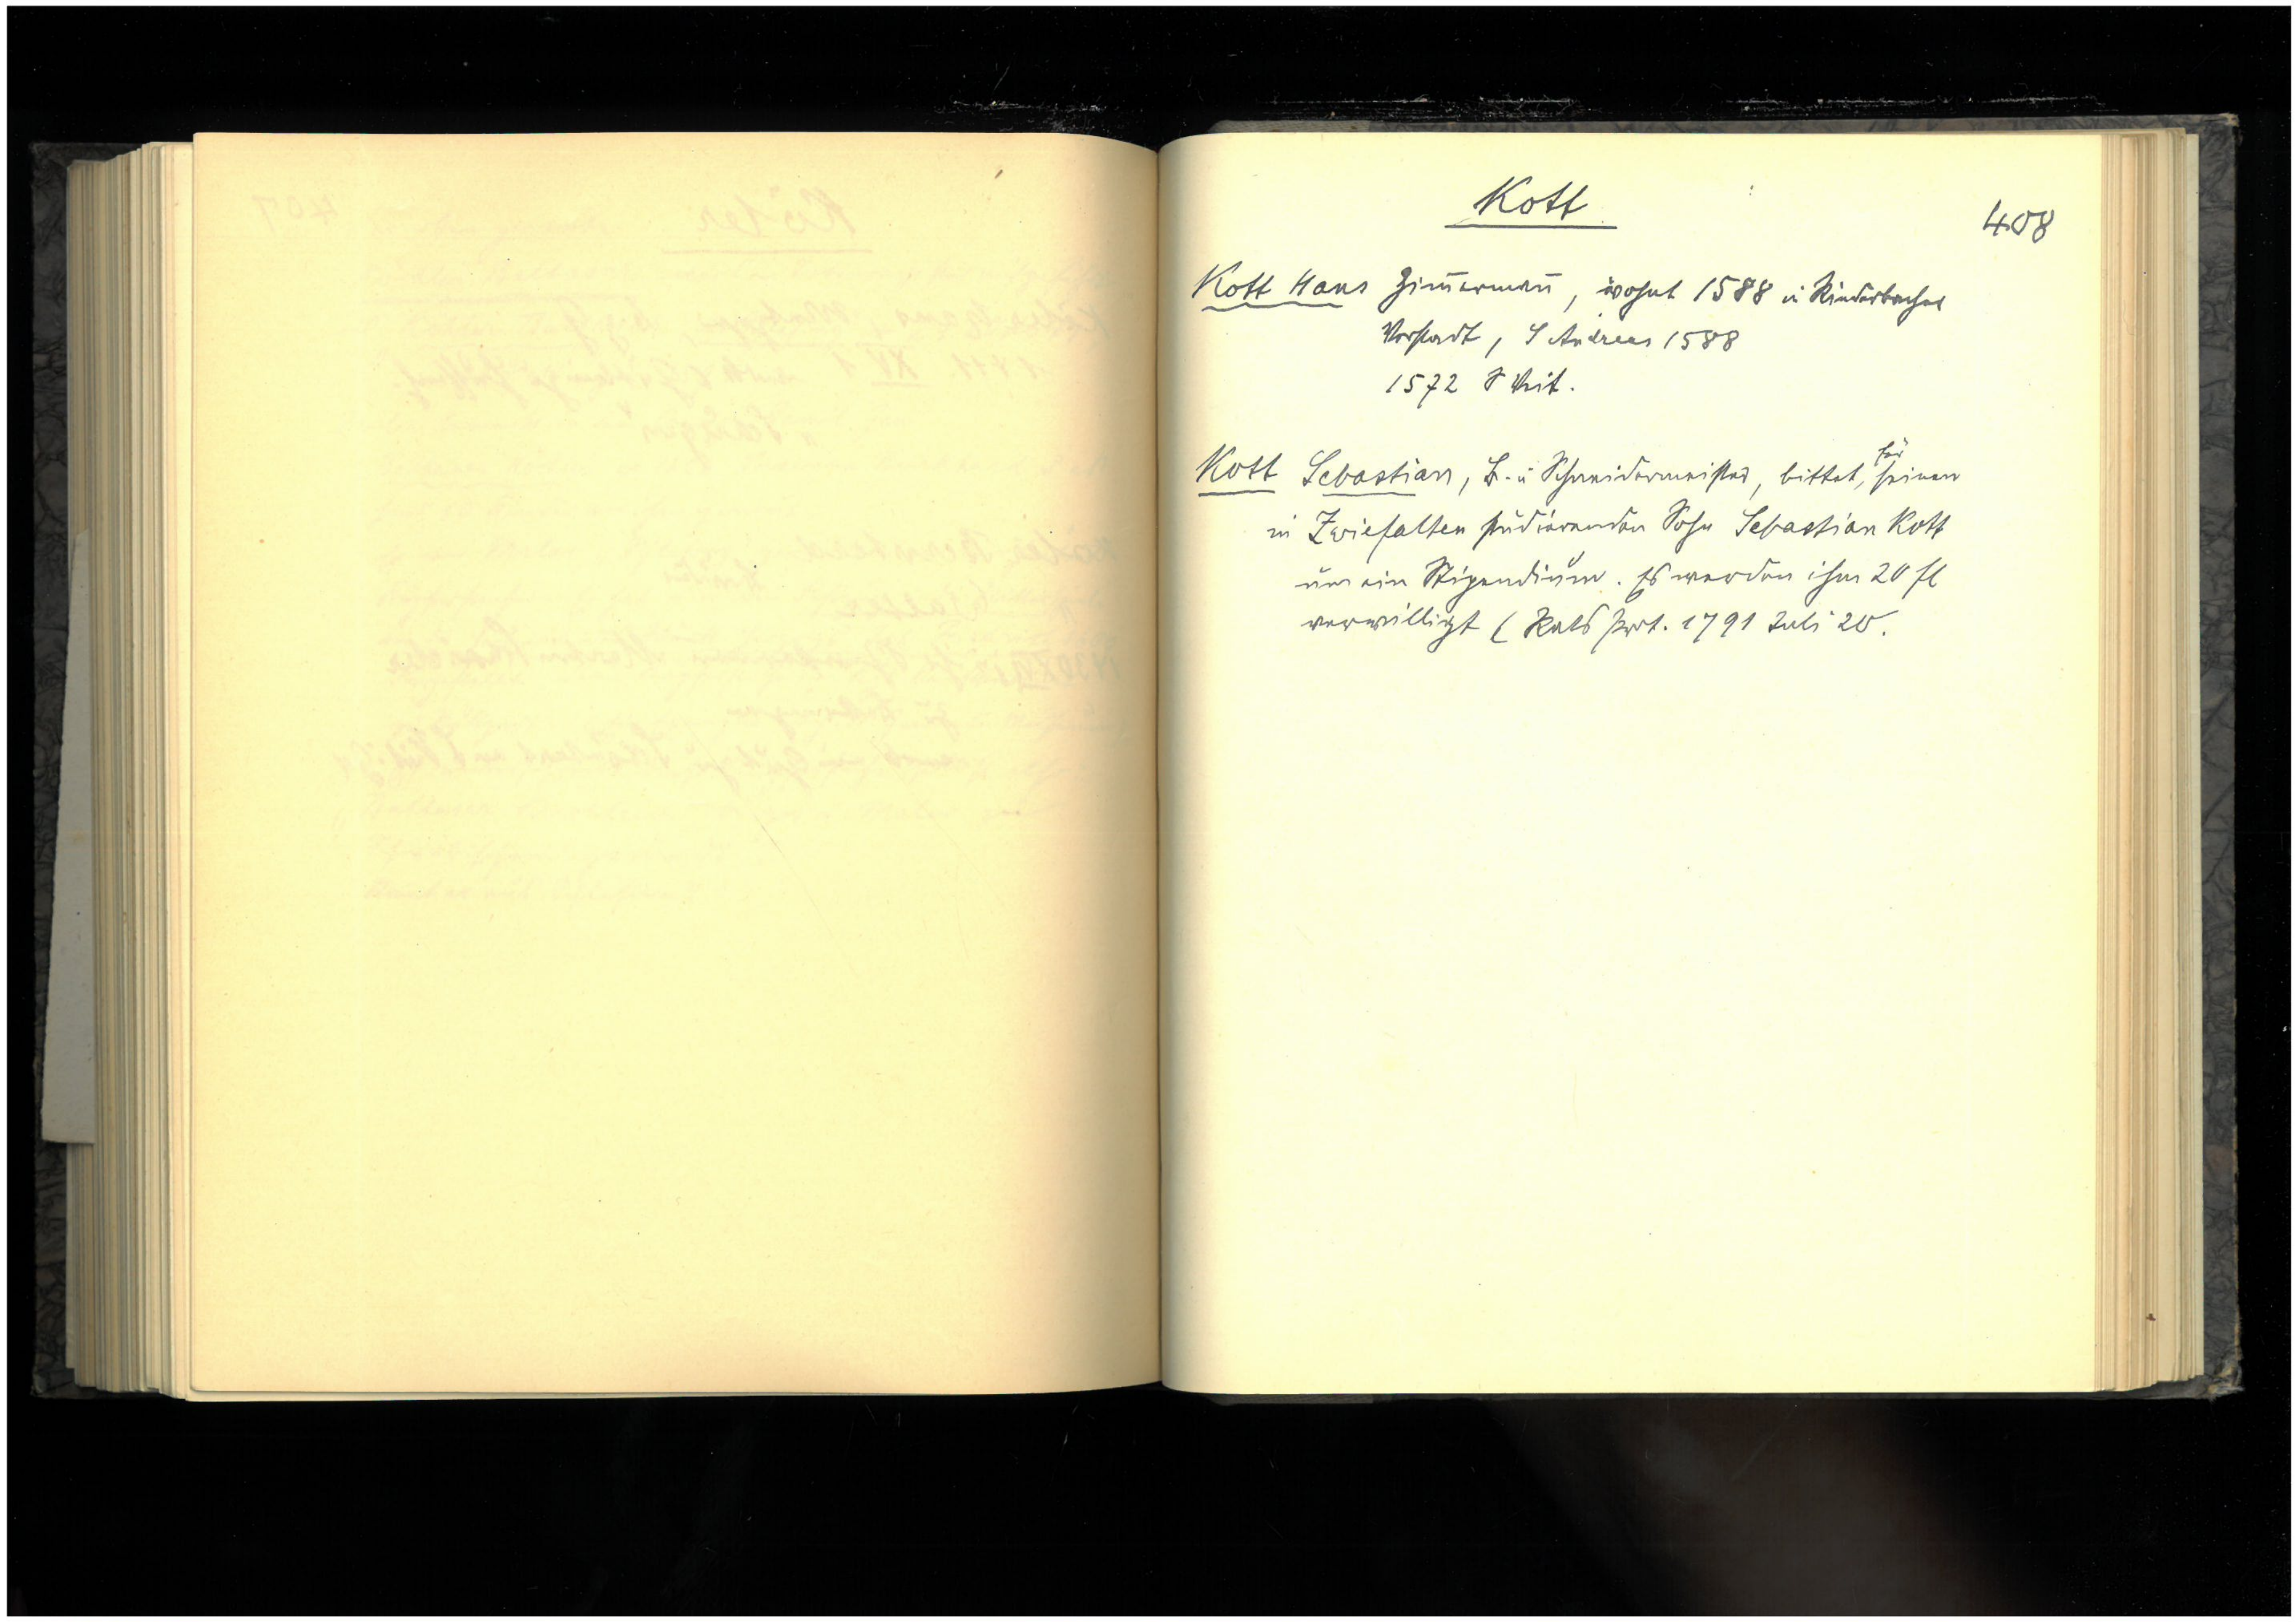 Kott
408
Kott Hans Zim̅erman̅, wohnt 1588 in Rinderbacher
Vorstadt, S Andreas 1588
1572 S Veit.
Kott Sebastian, B. u Schneidermeister, bittet, für seinen
in Zwiefalten studierenden Sohn Sebastian Kott
um ein Stipendium. Es werden ihm 20 fl
verwilligt ( Rats Prot. 1791 Juli 20.